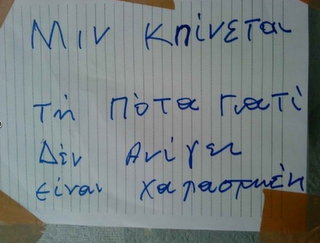 Μιν κπίνεται
τή πότα γιατί
Δέν Ανίγει
είναι χαρασμένη